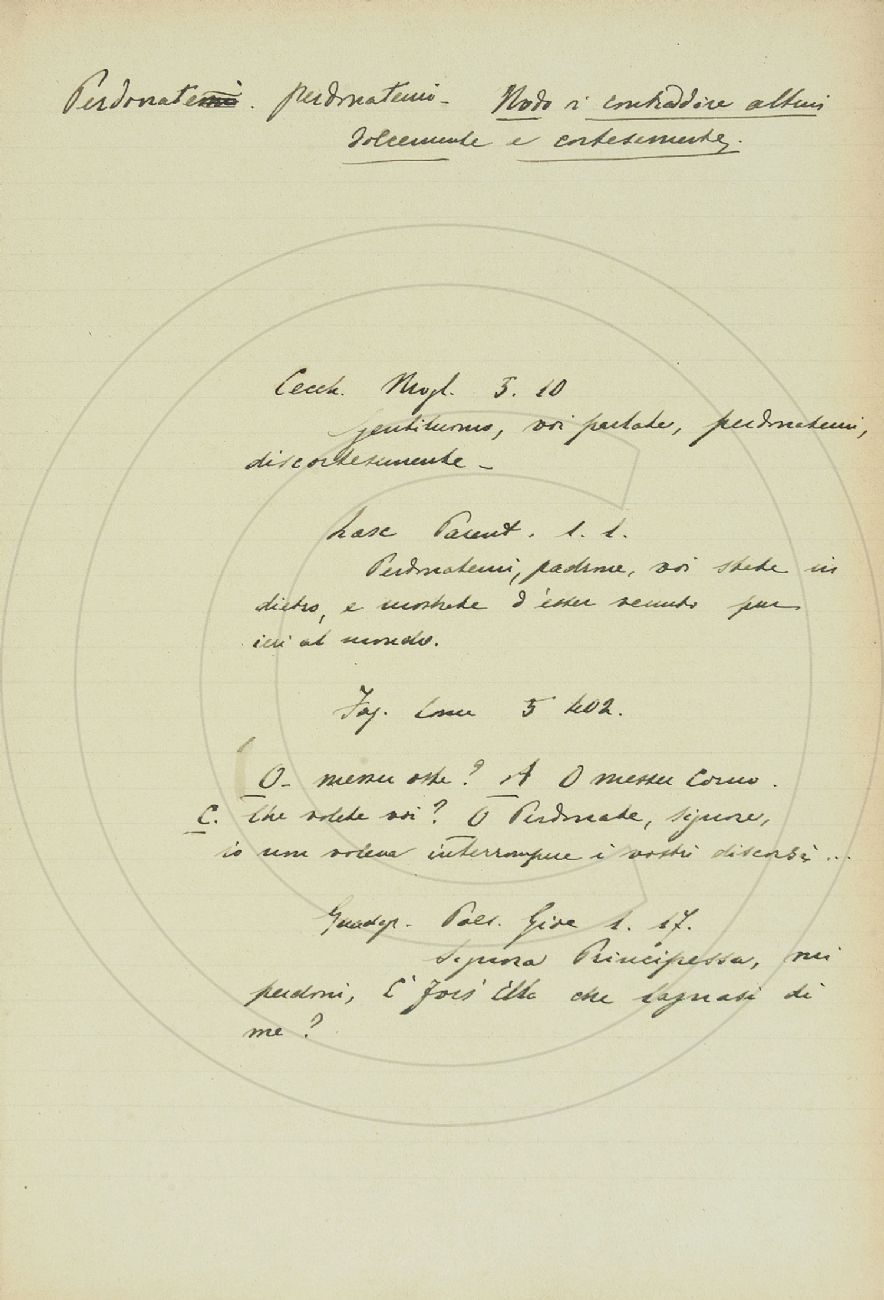 Perdonatemi. perdonatemi - Modo di contraddire altrui
dolcemente e cortesemente.
Cecch. Mogl. 5. 10
Gentiluomo, voi parlate, perdonatemi,
discortesemente -
Lasc Parent. 1. 1.
Perdonatemi, padrone, voi siete in
dietro, e mostrate d'esser venuto pur
ieri al mondo.
Fag. Com 5 402.
O- messer oste? A O messer Como.
C. Che volete voi? O Perdonate, signore,
io non voleva interrompere i vostri discorsi...
Guadagn. Poes. Gioc 1. 17.
Signora Principessa, mi
perdoni, È fors' Ella che lagnasi di
me?